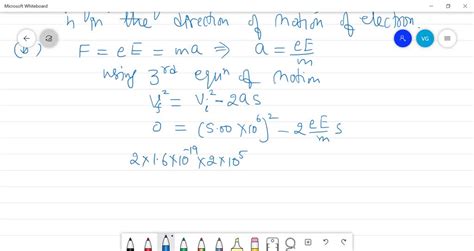 Microsoft Whiteboard
in the direction of motion of electron.
VG
(b) F = eE = ma ⇒ a = eE/m
using 3rd eqn of motion
V_f² = V_i² - 2as
0 = (5.00 × 10⁶)² - 2 eE/m s
2×1.6×10⁻¹⁹×2×10⁵